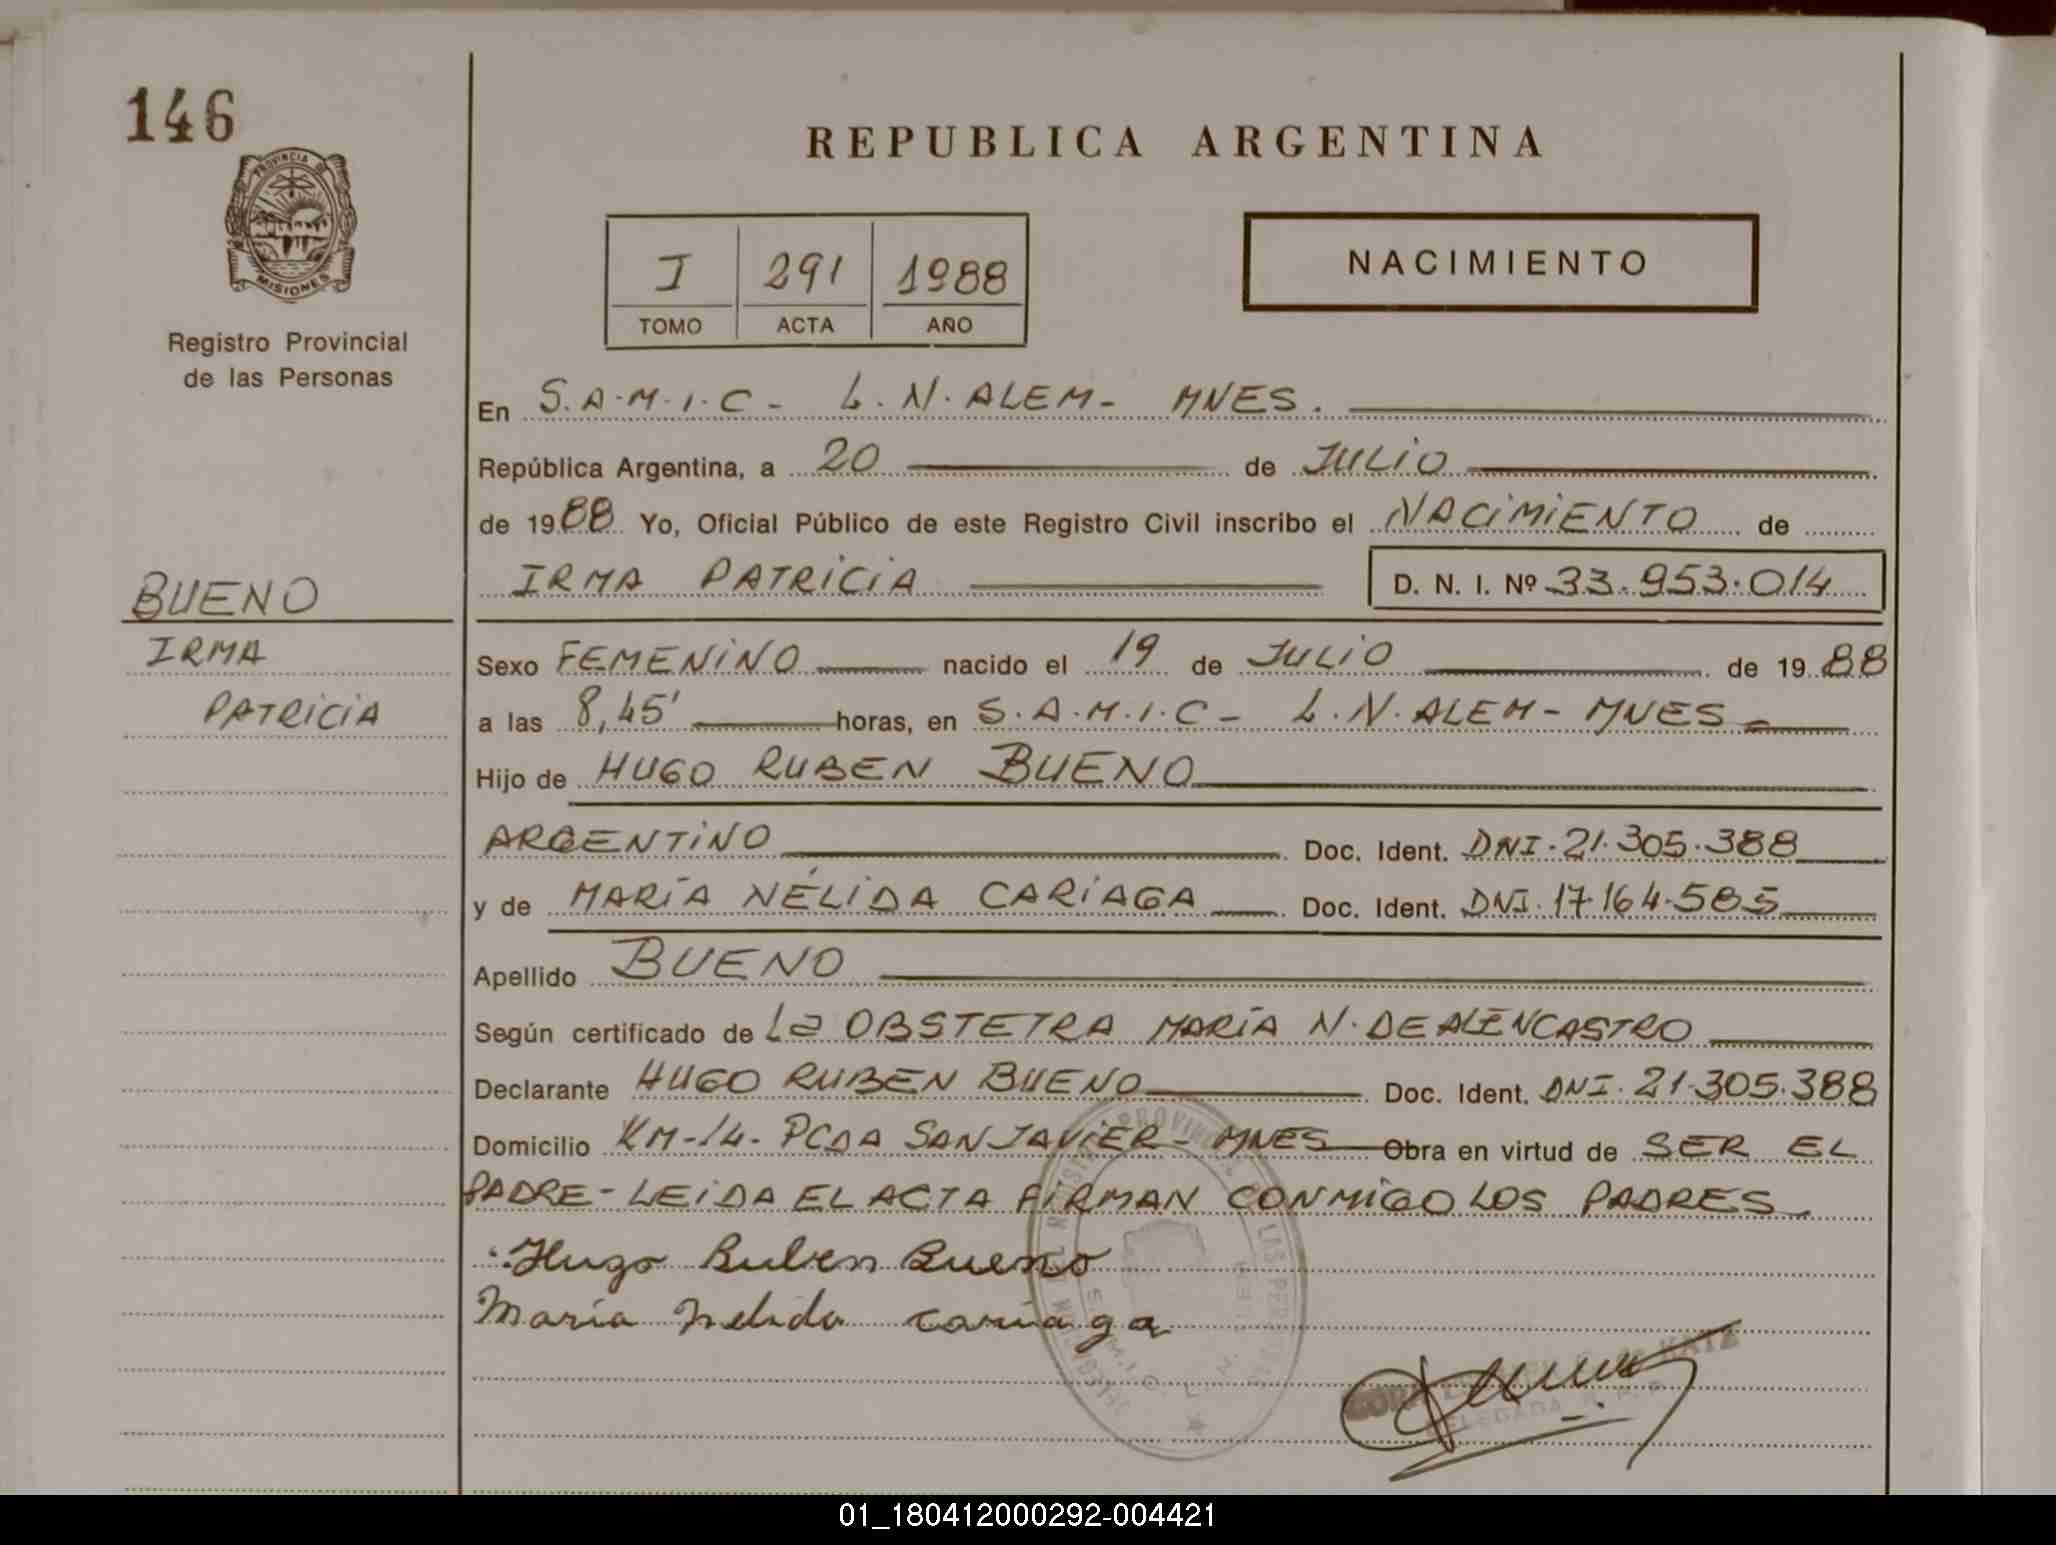 146
PROVINCIA DE
MISIONES
Registro Provincial
de las Personas
REPUBLICA ARGENTINA
I 291 1988
TOMO ACTA AÑO
NACIMIENTO
En S.A.M.I.C- L.N.ALEM- MNES.
República Argentina, a 20 de JULIO
de 1988 Yo, Oficial Público de este Registro Civil inscribo el NACIMIENTO de
IRMA PATRICIA D. N. I. Nº 33.953.014
BUENO
IRMA
PATRICIA
Sexo FEMENINO nacido el 19 de JULIO de 1988
a las 8,45' horas, en S.A.M.I.C- L.N.ALEM- MNES
Hijo de HUGO RUBEN BUENO
ARGENTINO Doc. Ident. DNI.21.305.388
y de MARÍA NÉLIDA CARIAGA Doc. Ident. DNI.17.164.585
Apellido BUENO
Según certificado de La OBSTETRA MARÍA N. DE ALENCASTRO
Declarante HUGO RUBEN BUENO Doc. Ident. DNI.21.305.388
Domicilio KM-14- PCDA SAN JAVIER- MNES Obra en virtud de SER EL
PADRE- LEIDA EL ACTA FIRMAN CONMIGO LOS PADRES
Hugo Ruben Bueno
María Nelida Cariaga
KATZ
DELEGADA
01_180412000292-004421